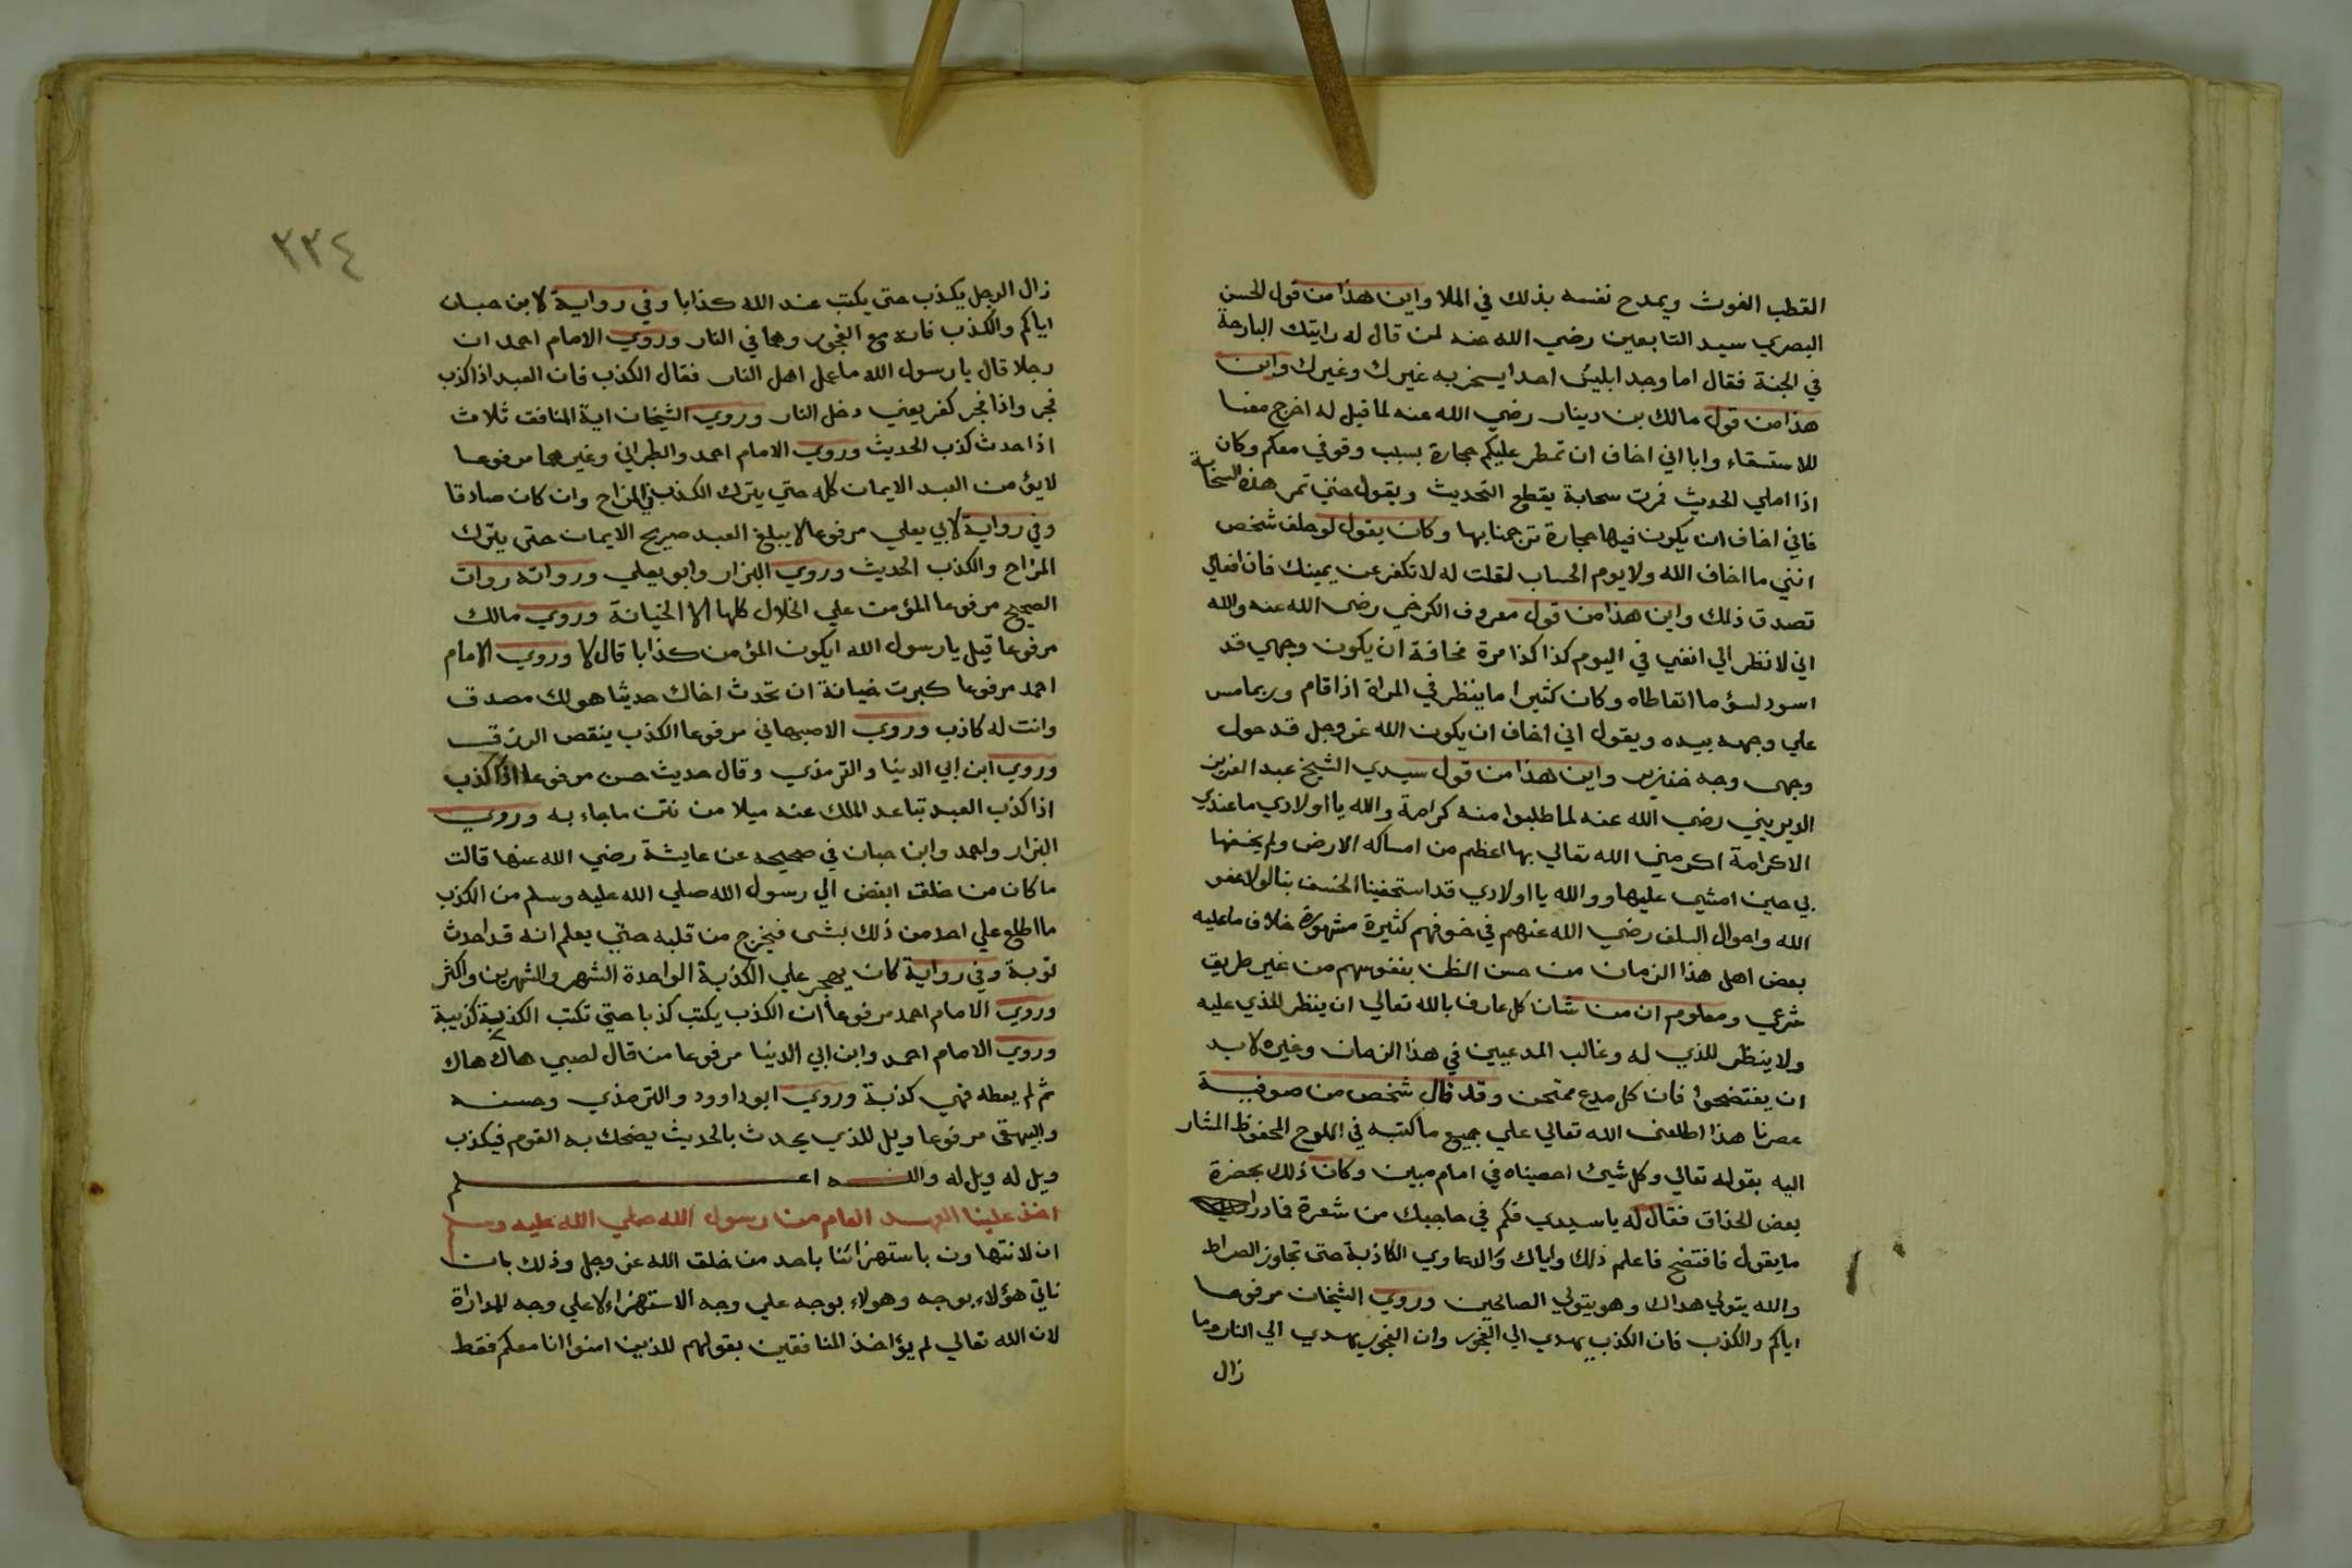 القطب الغوث ويمدح نفسه بذلك في الملا واين هذا من قول الحسن
البصري سيد التابعين رضي الله عنه لمن قال له رايتك البارحة
في الجنة فقال اما وجد ابليس احدا يسخر به غيرك وغيرك واين
هذا من قول مالك بن دينار رضي الله عنه لما قيل له اخرج معنا
للاستسقاء وابا اني اخاف ان تمطر عليكم حجارة بسبب وقوفي معكم وكان
اذا املي الحديث فمرت سحابة يقطع التحديث ويقول حتي تمر هذه السحابة
فاني اخاف ان يكون فيها حجارة ترجمنا بها وكان يقول لو حلف شخص
انني ما اخاف الله ولا يوم الحساب لقلت له لا تكفر عن يمينك فان افعالي
تصدق ذلك واين هذا من قول معروف الكرخي رضي الله عنه والله
اني لانظر الي انفي في اليوم كذا كذا مرة مخافة ان يكون وجهي قد
اسود لسؤ ما اتعاطاه وكان كثيرا ما ينظر في المراة اذا قام وربما مس
علي وجهه بيده ويقول اني اخاف ان يكون الله عز وجل قد حول
وجهى وجه خنزير واين هذا من قول سيدي الشيخ عبد العزيز
الديريني رضي الله عنه لما طلبوا منه كرامة والله يا اولادي ما عندي
الا كرامة اكرمني الله تعالي بها اعظم من امساكه الارض ولم يخسفها
بي حين امشي عليها ووالله يا اولادي قد استحقينا الخسف بنا لولا عفو
الله واحوال السلف رضي الله عنهم في خوفهم كثيرة مشهورة خلاف ما عليه
بعض اهل هذا الزمان من حسن الظن بنفوسهم من غير طريق
شرعي ومعلوم ان من شان كل عارف بالله تعالي ان ينظر للذي عليه
ولا ينظر للذي له وغالب المدعيين في هذا الزمان وغيره لا بد
ان يفتضحوا فان كل مدع ممتحن وقد قال شخص من صوفية
عصرنا هذا اطلعنى الله تعالي علي جميع ما كتبه في اللوح المحفوظ المشار
اليه بقوله تعالي وكل شيئ احصيناه في امام مبين وكان ذلك بحضرة
بعض الحذاق فقال له يا سيدي فكم في حاجبك من شعرة فما درا
ما يقول فافتضح فاعلم ذلك واياك والدعاوي الكاذبة حتى تجاوز الصراط
والله يتولي هداك وهو يتولي الصالحين وروي الشيخان مرفوعا
اياكم والكذب فان الكذب يهدي الي الفجور وان الفجور يهدي الي النار وما
زال
٢٣٤
زال الرجل يكذب حتى يكتب عند الله كذابا وفي رواية لابن حبان
اياكم والكذب فانه مع الفجور وهما في النار وروي الامام احمد ان
رجلا قال يا رسول الله ما عمل اهل النار فقال الكذب فان العبد اذا كذب
فجر واذا فجر كفر يعني دخل النار وروي الشيخان اية المنافق ثلاث
اذا حدث كذب الحديث وروي الامام احمد والطبراني وغيرهما مرفوعا
لا يؤمن العبد الايمان كله حتي يترك الكذب في المزاح وان كان صادقا
وفي رواية لابي يعلي مرفوعا لا يبلغ العبد صريح الايمان حتى يترك
المزاح والكذب الحديث وروي البزار وابو يعلي ورواته روات
الصحيح مرفوعا المؤمن علي الخلال كلها الا الخيانة وروي مالك
مرفوعا قيل يا رسول الله ايكون المؤمن كذابا قال لا وروي الامام
احمد مرفوعا كبرت خيانة ان تحدث اخاك حديثا هو لك مصدق
وانت له كاذب وروي الاصبهاني مرفوعا الكذب ينقص الرزق
وروي ابن ابي الدنيا والترمذي وقال حديث حسن مرفوعا اذا كذب
اذا كذب العبد تباعد الملك عنه ميلا من نتن ما جاء به وروي
البزار واحمد وابن حبان في صحيحه عن عايشة رضي الله عنها قالت
ما كان من خلق ابغض الي رسول الله صلي الله عليه وسلم من الكذب
ما اطلع علي احد من ذلك بشى فيخرج من قلبه حتي يعلم انه قد احدث
توبة وفي رواية كان يهجر علي الكذبة الواحدة الشهر والشهرين واكثر
وروي الامام احمد مرفوعا ان الكذب يكتب كذبا حتي تكتب الكذيبة كذيبة
وروي الامام احمد وابن ابي الدنيا مرفوعا من قال لصبي هاك هاك
ثم لم يعطه فهي كذبة وروي ابو داوود والترمذي وحسنه
والبيهقى مرفوعا ويل للذي يحدث بالحديث يضحك به القوم فيكذب
ويل له ويل له والله اعلم
اخذ علينا العهد العام من رسول الله صلي الله عليه وسلم
ان لا نتهاون باستهزائنا باحد من خلق الله عز وجل وذلك بان
ناتي هؤلاء بوجه وهولاء بوجه علي وجه الاستهزاء لا علي وجه المداراة
لان الله تعالي لم يؤاخذ المنافقين بقولهم للذين امنوا انا معكم فقط